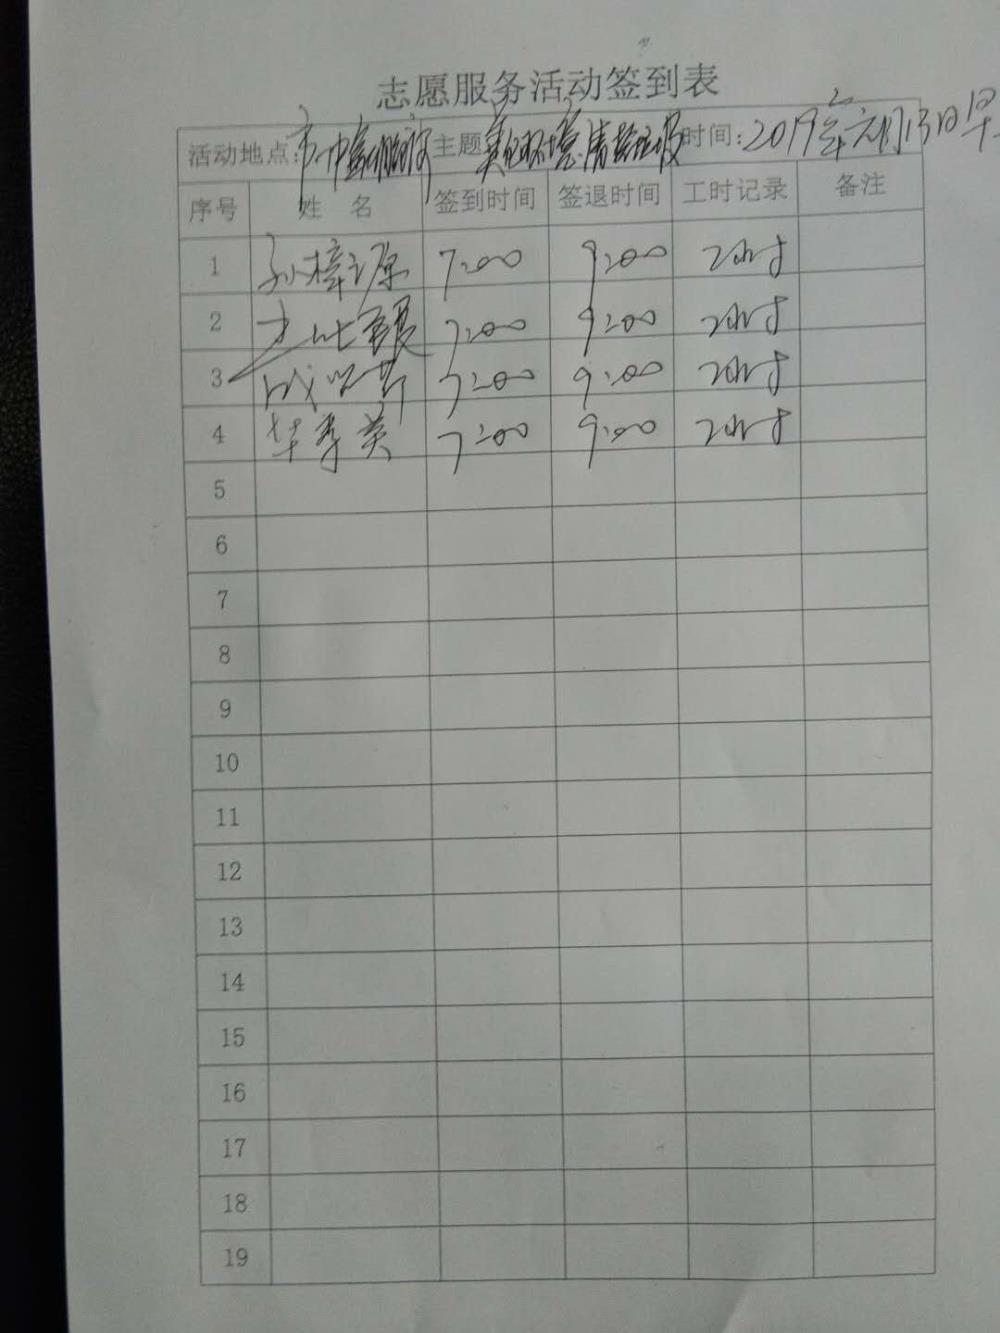 志愿服务活动签到表
活动地点: 主题 美化环境、清整垃圾 时间: 2019年元月13日早
序号 姓 名 签到时间 签退时间 工时记录 备注
1 孙樟源 7:00 9:00 2小时
2 7:00 9:00 2小时
3 7:00 9:00 2小时
4 华秀英 7:00 9:00 2小时
5
6
7
8
9
10
11
12
13
14
15
16
17
18
19